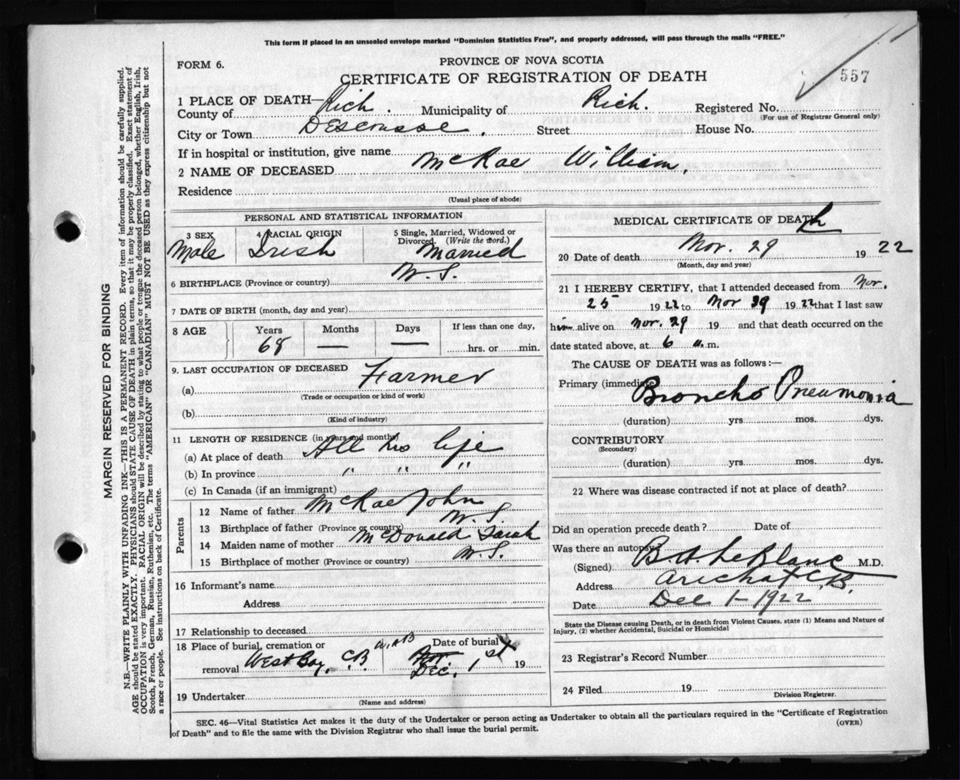 This form if placed in an unsealed envelope marked "Dominion Statistics Free", and properly addressed, will pass through the mails "FREE."
FORM 6.
PROVINCE OF NOVA SCOTIA
CERTIFICATE OF REGISTRATION OF DEATH
557
1 PLACE OF DEATH—
County of Rich. Municipality of Rich. Registered No.
(For use of Registrar General only)
City or Town Descousse. Street House No.
If in hospital or institution, give name
2 NAME OF DECEASED McRae William.
Residence
(Usual place of abode)
PERSONAL AND STATISTICAL INFORMATION
3 SEX 4 RACIAL ORIGIN 5 Single, Married, Widowed or Divorced. (Write the word.)
Male Irish Married
6 BIRTHPLACE (Province or country) N.S.
7 DATE OF BIRTH (month, day and year)
8 AGE Years Months Days If less than one day,
68 — — hrs. or min.
9. LAST OCCUPATION OF DECEASED
(a) Farmer
(Trade or occupation or kind of work)
(b)
(Kind of industry)
11 LENGTH OF RESIDENCE (in years and months)
(a) At place of death All his life
(b) In province " " "
(c) In Canada (if an immigrant)
Parents
12 Name of father McRae John
13 Birthplace of father (Province or country) N.S.
14 Maiden name of mother McDonald Sarah
15 Birthplace of mother (Province or country) N.S.
16 Informant's name
Address
17 Relationship to deceased
18 Place of burial, cremation or removal West Bay, C.B. Date of burial Dec. 1st 19
19 Undertaker
(Name and address)
MEDICAL CERTIFICATE OF DEATH
20 Date of death Nov. 29 1922
(Month, day and year)
21 I HEREBY CERTIFY, that I attended deceased from Nov.
25 1922 to Nov 29 1922 that I last saw
him alive on Nov. 29 19 and that death occurred on the
date stated above, at 6 a.m.
The CAUSE OF DEATH was as follows :—
Primary (immediate) Broncho Pneumonia
(duration) yrs. mos. dys.
CONTRIBUTORY
(Secondary)
(duration) yrs. mos. dys.
22 Where was disease contracted if not at place of death?
Did an operation precede death? Date of
Was there an autopsy?
(Signed) B. A. LeBlanc M.D.
Address Arichat C.B.
Date Dec 1-1922
State the Disease causing Death, or in death from Violent Causes, state (1) Means and Nature of Injury, (2) whether Accidental, Suicidal or Homicidal
23 Registrar's Record Number
24 Filed 19
Division Registrar.
SEC. 46—Vital Statistics Act makes it the duty of the Undertaker or person acting as Undertaker to obtain all the particulars required in the "Certificate of Registration
of Death" and to file the same with the Division Registrar who shall issue the burial permit.
(OVER)
MARGIN RESERVED FOR BINDING
N.B.—WRITE PLAINLY WITH UNFADING INK—THIS IS A PERMANENT RECORD. Every item of information should be carefully supplied.
AGE should be stated EXACTLY. PHYSICIANS should STATE CAUSE OF DEATH in plain terms, so that it may be properly classified. Exact statement of
OCCUPATION is very important. RACIAL ORIGIN will be described by stating to what people or tongue the deceased person belonged, whether English, Irish,
Scotch, French, German, Russian, Ruthenian, etc. The terms "AMERICAN" OR "CANADIAN" MUST NOT BE USED as they express citizenship but not
a race or people. See instructions on back of Certificate.